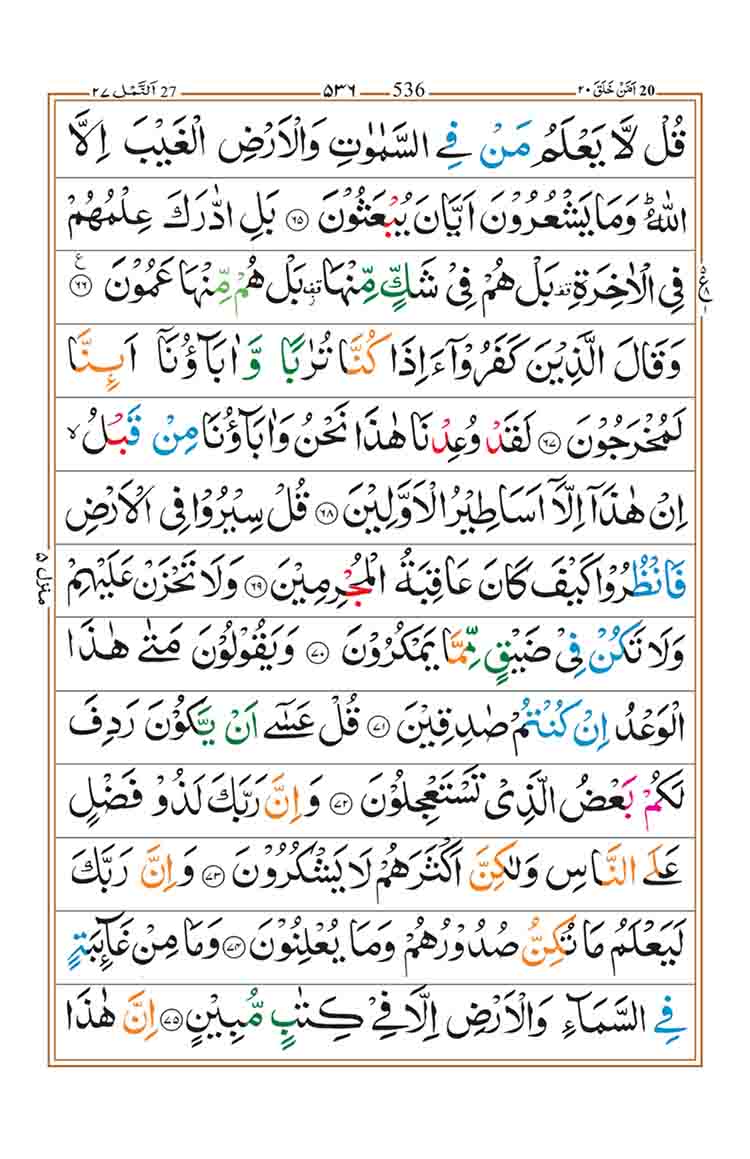 ٢٧ اَلنَّمْل 27 ٥٣٦ 536 ٢٠ اَمَّنْ خَلَقَ 20
قُلْ لَّا يَعْلَمُ مَنْ فِي السَّمٰوٰتِ وَالْاَرْضِ الْغَيْبَ اِلَّا
اللّٰهُ ؕ وَمَا يَشْعُرُوْنَ اَيَّانَ يُبْعَثُوْنَ ۝٦٥ بَلِ ادّٰرَكَ عِلْمُهُمْ
فِي الْاٰخِرَةِ قف بَلْ هُمْ فِيْ شَكٍّ مِّنْهَا قف بَلْ هُمْ مِّنْهَا عَمُوْنَ ۝٦٦ ع
وَقَالَ الَّذِيْنَ كَفَرُوْۤا ءَاِذَا كُنَّا تُرٰبًا وَّاٰبَآؤُنَاۤ اَىِٕنَّا
لَمُخْرَجُوْنَ ۝٦٧ لَقَدْ وُعِدْنَا هٰذَا نَحْنُ وَاٰبَآؤُنَا مِنْ قَبْلُ ۙ
اِنْ هٰذَاۤ اِلَّاۤ اَسَاطِيْرُ الْاَوَّلِيْنَ ۝٦٨ قُلْ سِيْرُوْا فِي الْاَرْضِ
فَانْظُرُوْا كَيْفَ كَانَ عَاقِبَةُ الْمُجْرِمِيْنَ ۝٦٩ وَلَا تَحْزَنْ عَلَيْهِمْ
وَلَا تَكُنْ فِيْ ضَيْقٍ مِّمَّا يَمْكُرُوْنَ ۝٧٠ وَيَقُوْلُوْنَ مَتٰى هٰذَا
الْوَعْدُ اِنْ كُنْتُمْ صٰدِقِيْنَ ۝٧١ قُلْ عَسٰۤى اَنْ يَّكُوْنَ رَدِفَ
لَكُمْ بَعْضُ الَّذِيْ تَسْتَعْجِلُوْنَ ۝٧٢ وَاِنَّ رَبَّكَ لَذُوْ فَضْلٍ
عَلَى النَّاسِ وَلٰكِنَّ اَكْثَرَهُمْ لَا يَشْكُرُوْنَ ۝٧٣ وَاِنَّ رَبَّكَ
لَيَعْلَمُ مَا تُكِنُّ صُدُوْرُهُمْ وَمَا يُعْلِنُوْنَ ۝٧٤ وَمَا مِنْ غَآىِٕبَةٍ
فِي السَّمَآءِ وَالْاَرْضِ اِلَّا فِيْ كِتٰبٍ مُّبِيْنٍ ۝٧٥ اِنَّ هٰذَا
منزل ٥